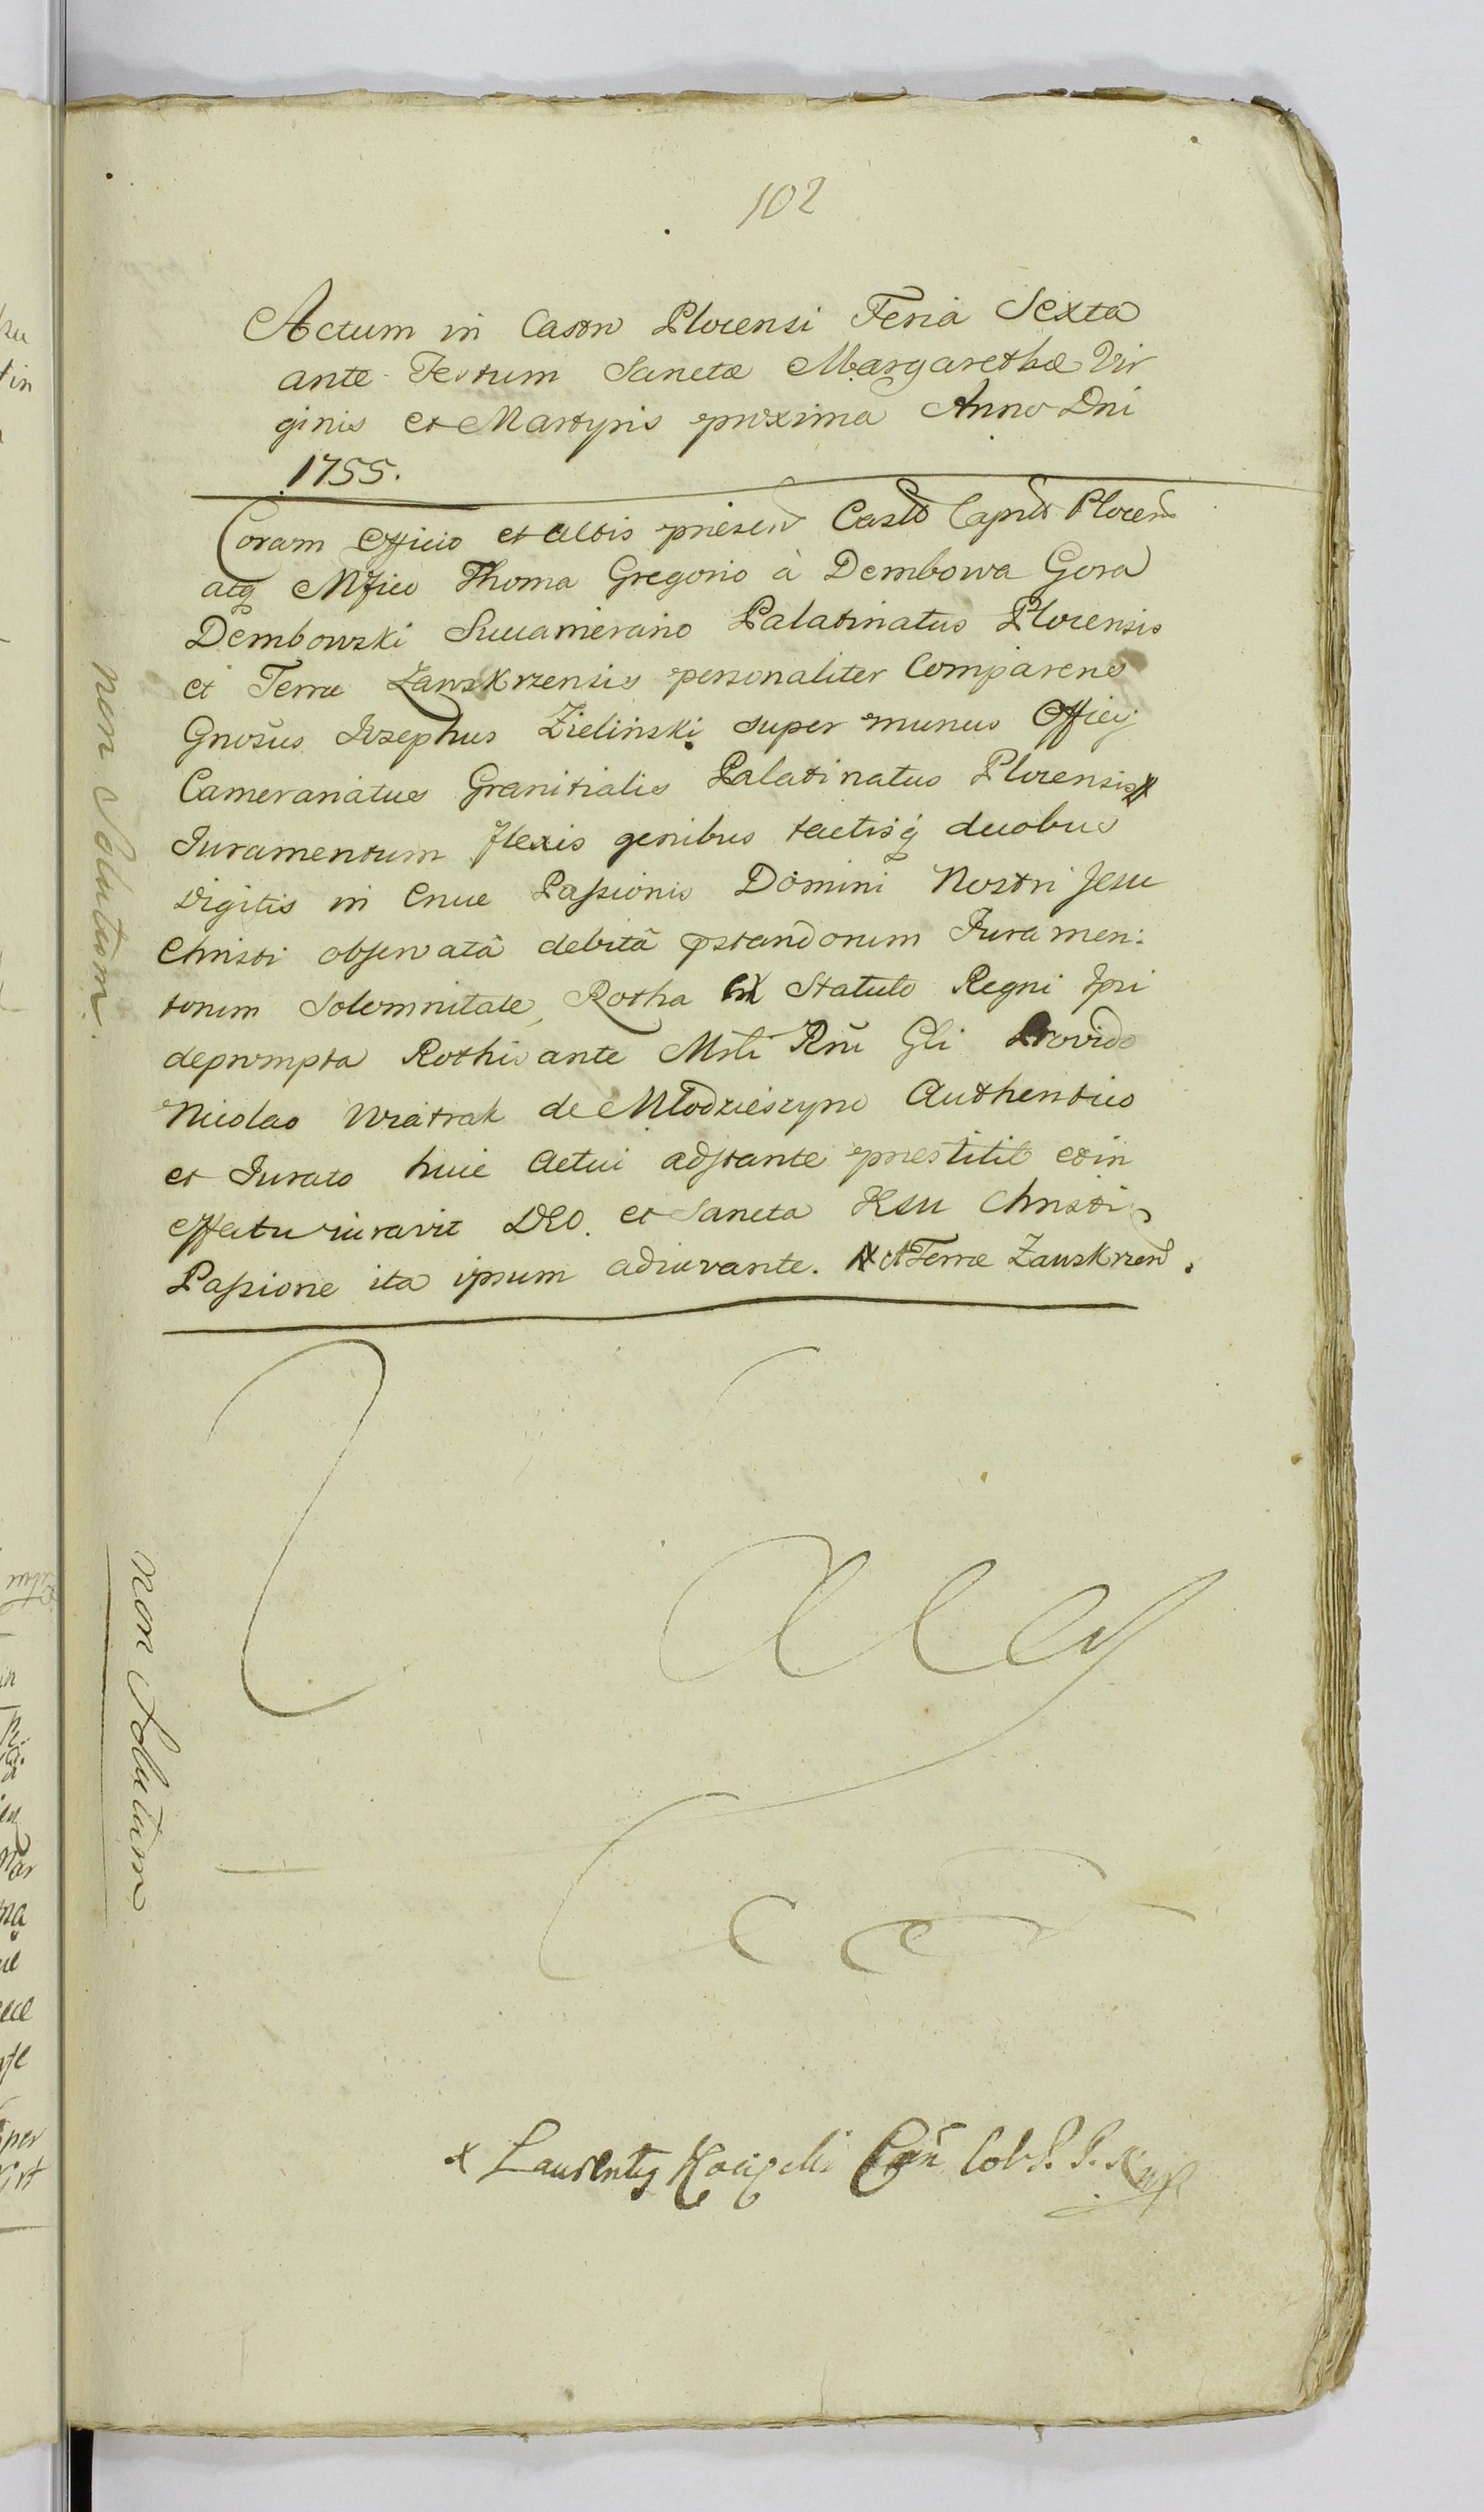 102
Actum in Castro Plocensi Feria Sexta
ante Festum Sanctæ Margarethæ Vir
ginis et Martyris proxima Anno Dni
1755.
Coram Officio et Actis præsen Castr Capit Plocen
atq Mfico Thoma Gregorio à Dembowa Gora
Dembowski Succamerario Palatinatus Plocensis
et Terræ Zawskrzensis personaliter Comparens
Gnosus Josephus Zielinski super munus Officij
Camerariatus Granitialis Palatinatus Plocensis #
Juramentum flexis genibus tactisq duobus
digitis in Cruce Passionis Domini Nostri Jesu
Christi observatâ debitâ pstandorum Juramen:
torum Solemnitate, Rotha ex Statuto Regni Ipsi
deprompta Rothisante Mrli Rni Gli Provido
Nicolao Wiatrak de Młodzieszyno Authentico
et Jurato huic Actui adstante præstitit et in
effectu iuravit DEO. et Sancta JESU Christi
Passione ita ipsum adiuvante. # et Terræ Zawskrzen.
non Solutum.
non Solutum